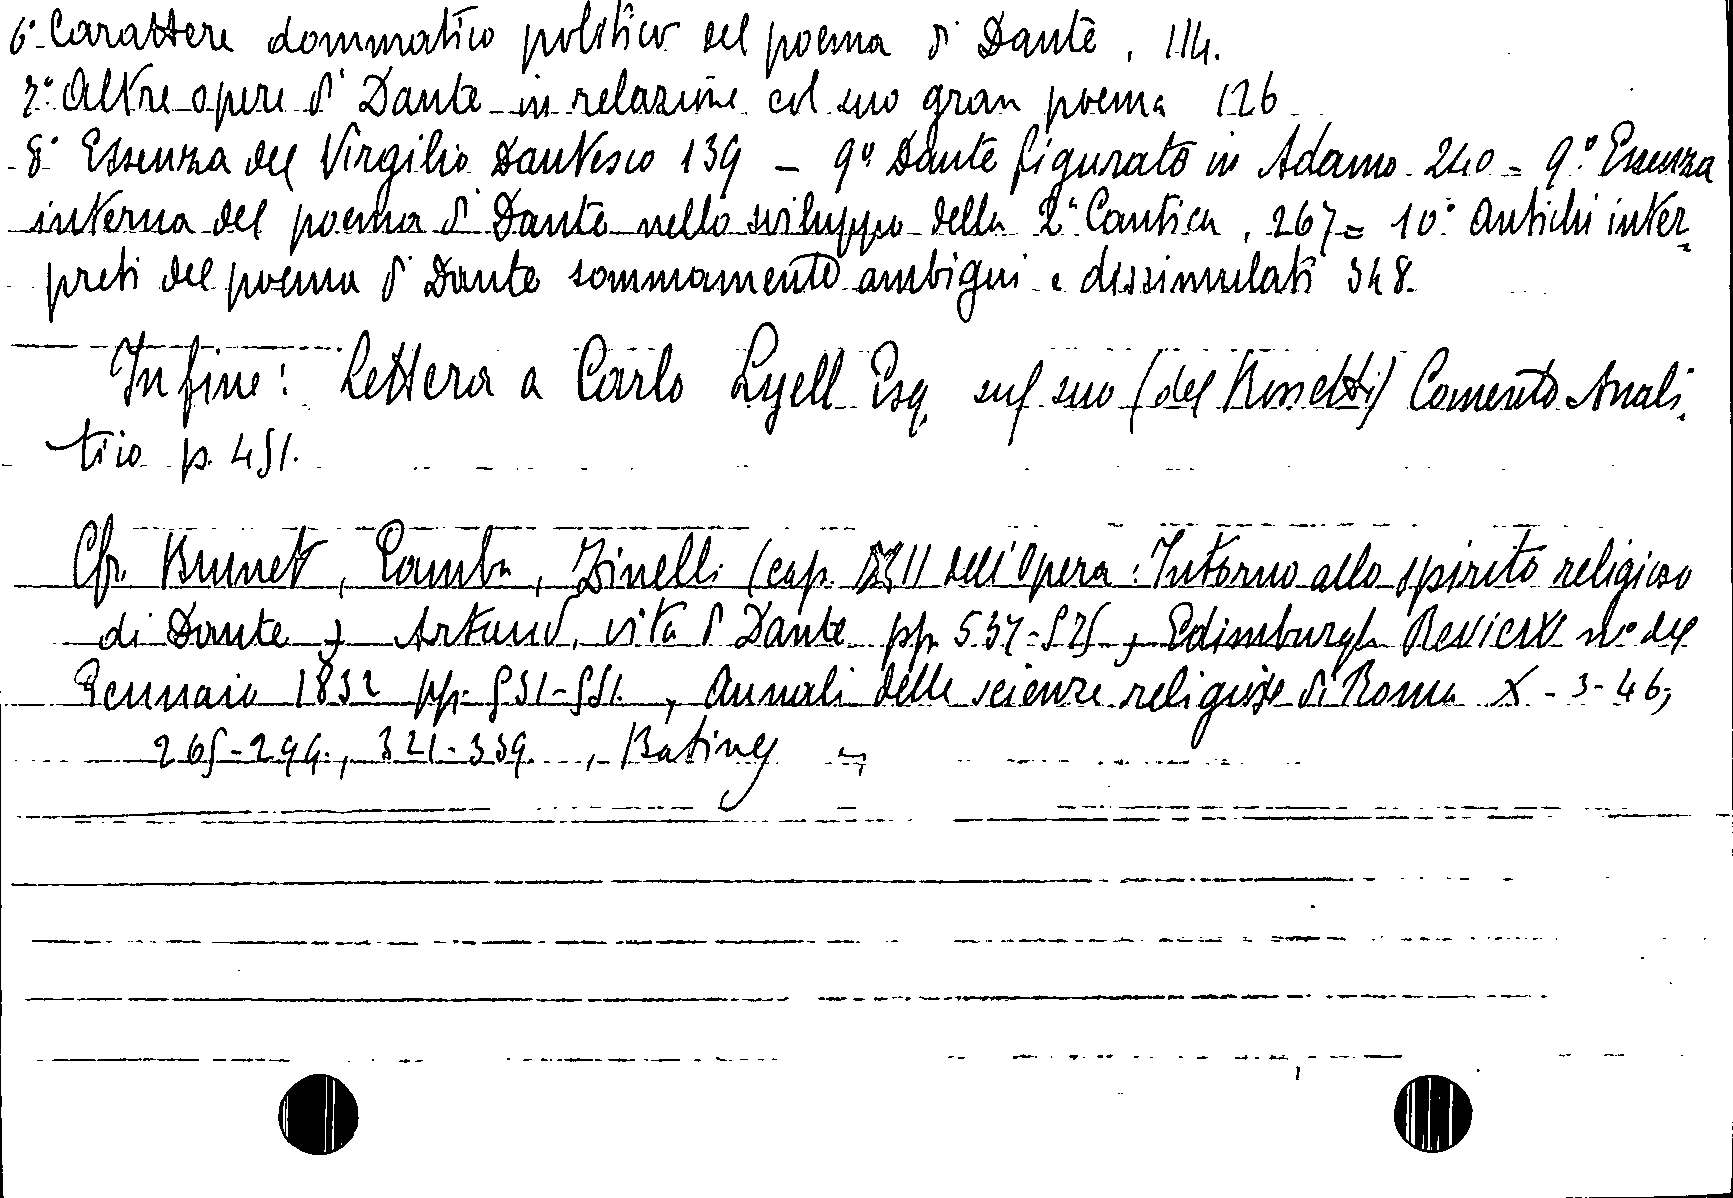 6° Carattere dommatico politico del poema di Dante, 114.
7° Altre opere di Dante in relazione col suo gran poema 126
8° Essenza del Virgilio Dantesco 139 – 9° Dante figurato in Adamo 240 = 9° Essenza
interna del poema di Dante nello sviluppo della 2ª Cantica, 267 = 10° Antichi inter
preti del poema di Dante sommamente ambigui e dissimulati 348.
Infine: Lettera a Carlo Lyell Esq. sul suo (del Rossetti) Comento Anali
tico p. 451.
Cfr. Brunet, Gamba, Zinelli (cap. XII dell'Opera: Intorno allo spirito religioso
di Dante, Artaud, vita di Dante pp. 537-575, Edimburgh Review n° del
Gennaio 1832 pp. 531-551, Annali delle scienze religiose di Roma X - 3-46,
265-299, 321-339, Batines